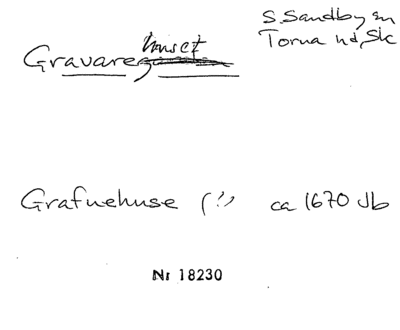 S. Sandby sn
Torna hd, Sk
Gravarehuset
Grafuehuse (!) ca 1670 Jb
Nr 18230